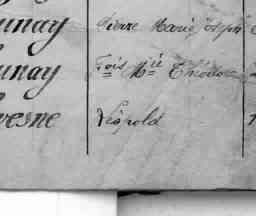 unay Pierre Marie Joseph
unay Fois Mie Théodore
vesne Léopold